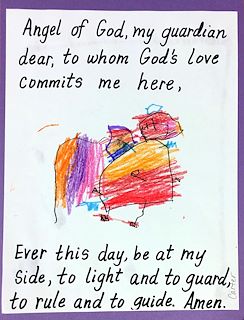 Angel of God, my guardian
dear, to whom God's love
commits me here,
Ever this day, be at my
side, to light and to guard,
to rule and to guide. Amen.
Carter